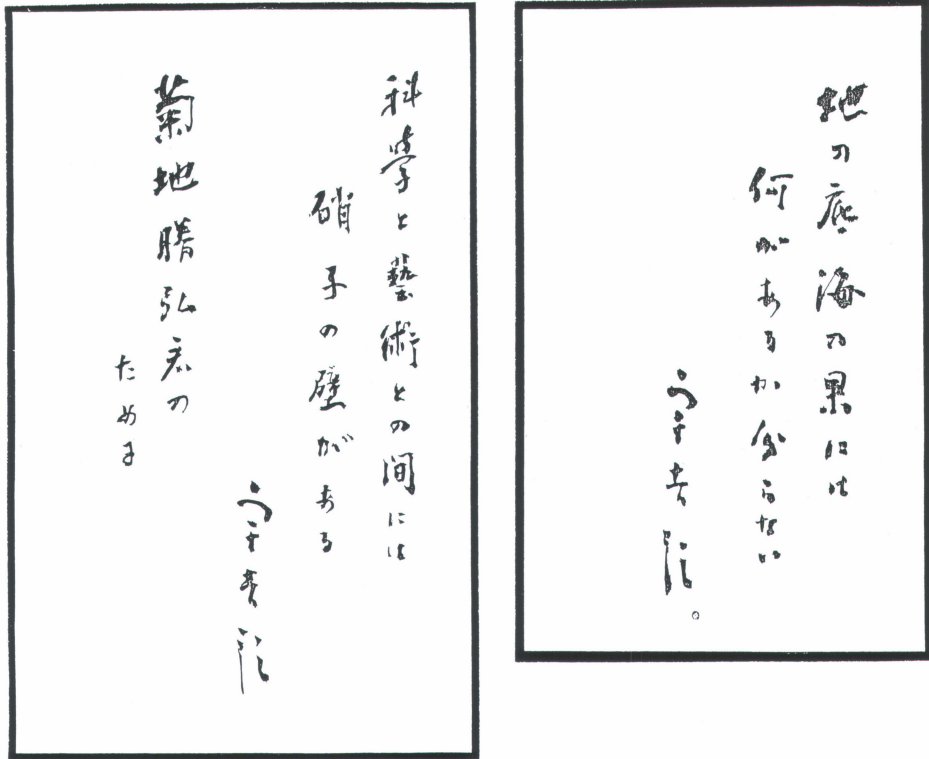 地の底海の果には
何があるか分らない
宇吉郎。
科學と藝術との間には
硝子の壁がある
宇吉郎
菊地勝弘君の
ために